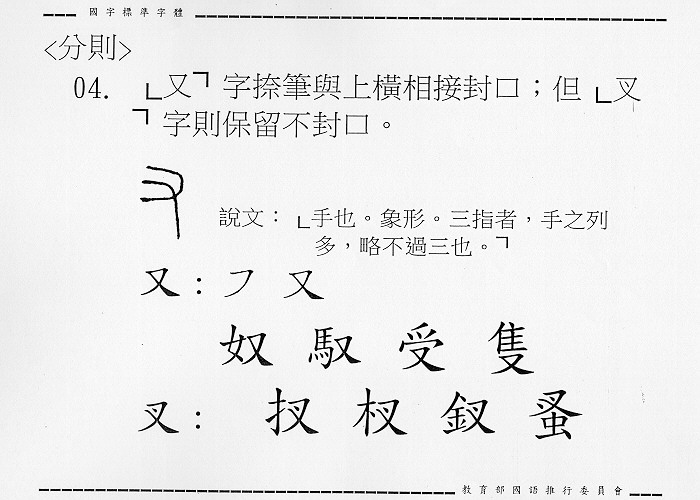 國字標準字體
<分則>
04. 「又」字捺筆與上橫相接封口；但「叉
」字則保留不封口。
說文：「手也。象形。三指者，手之列
多，略不過三也。」
又：㇇ 又
奴 馭 受 隻
叉： 扠 杈 釵 蚤
教育部國語推行委員會